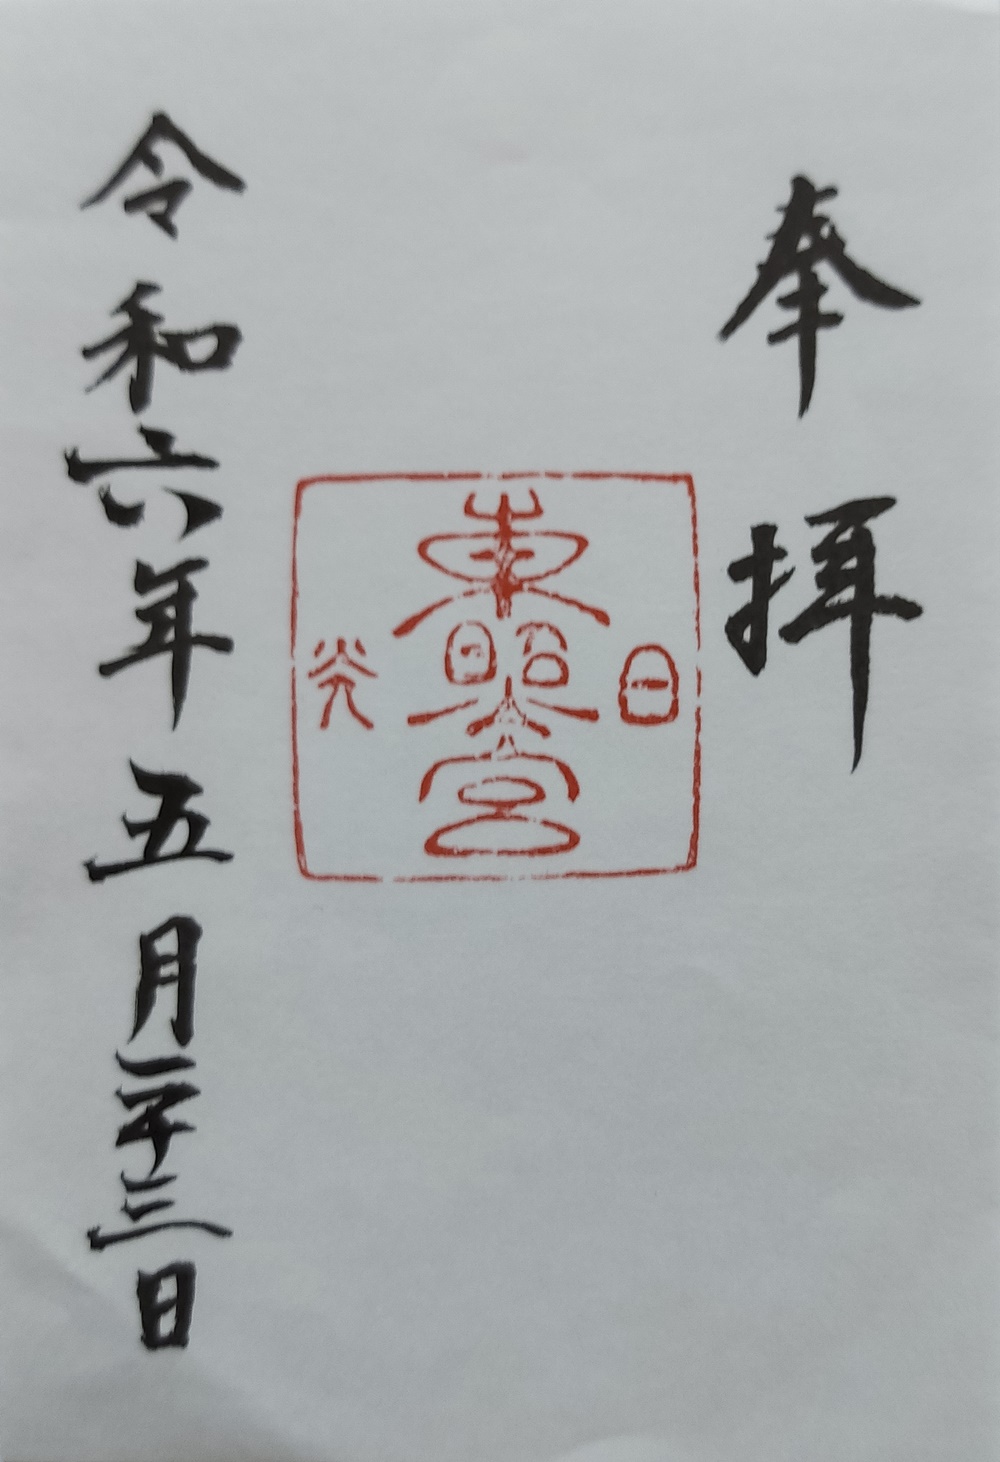 奉拝
日光
東照宮
令和六年五月二十三日